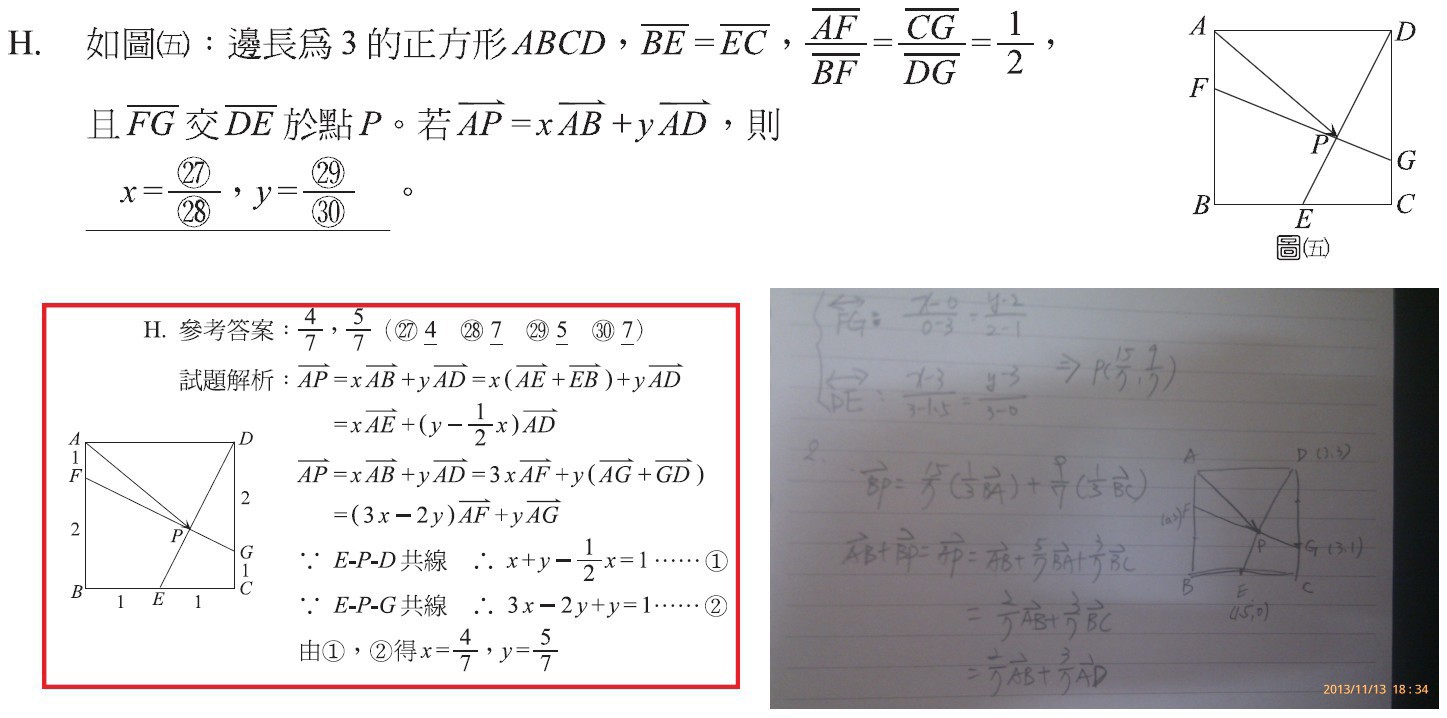 H. 如圖㈤：邊長為 3 的正方形 ABCD，\overline{BE} = \overline{EC}，\frac{\overline{AF}}{\overline{BF}} = \frac{\overline{CG}}{\overline{DG}} = \frac{1}{2}，
且 \overline{FG} 交 \overline{DE} 於點 P。若 \overrightarrow{AP} = x\overrightarrow{AB} + y\overrightarrow{AD}，則
x = \frac{㉗}{㉘}，y = \frac{㉙}{㉚}。
A D
F
P G
B E C
圖㈤
H. 參考答案：\frac{4}{7}，\frac{5}{7}（㉗ 4 ㉘ 7 ㉙ 5 ㉚ 7）
試題解析：\overrightarrow{AP} = x\overrightarrow{AB} + y\overrightarrow{AD} = x(\overrightarrow{AE} + \overrightarrow{EB}) + y\overrightarrow{AD}
= x\overrightarrow{AE} + (y - \frac{1}{2}x)\overrightarrow{AD}
\overrightarrow{AP} = x\overrightarrow{AB} + y\overrightarrow{AD} = 3x\overrightarrow{AF} + y(\overrightarrow{AG} + \overrightarrow{GD})
= (3x - 2y)\overrightarrow{AF} + y\overrightarrow{AG}
∵ E-P-D 共線 ∴ x + y - \frac{1}{2}x = 1 ⋯⋯ ①
∵ E-P-G 共線 ∴ 3x - 2y + y = 1 ⋯⋯ ②
由①，②得 x = \frac{4}{7}，y = \frac{5}{7}
A D
1
F
2 2
P
G
1
B 1 E 1 C
\overleftrightarrow{FG}: \frac{x-0}{0-3} = \frac{y-2}{2-1}
⇒ P(\frac{15}{7}, \frac{9}{7})
\overleftrightarrow{DE}: \frac{x-3}{3-1.5} = \frac{y-3}{3-0}
2.
\overrightarrow{BP} = \frac{15}{7}(\frac{1}{3}\overrightarrow{BA}) + \frac{9}{7}(\frac{1}{3}\overrightarrow{BC})
\overrightarrow{AB} + \overrightarrow{BP} = \overrightarrow{AP} = \overrightarrow{AB} + \frac{5}{7}\overrightarrow{BA} + \frac{3}{7}\overrightarrow{BC}
= \frac{2}{7}\overrightarrow{AB} + \frac{3}{7}\overrightarrow{BC}
= \frac{2}{7}\overrightarrow{AB} + \frac{3}{7}\overrightarrow{AD}
A D (3,3)
F
P G (3,1)
B E C
(1.5,0)
2013/11/13 18:34